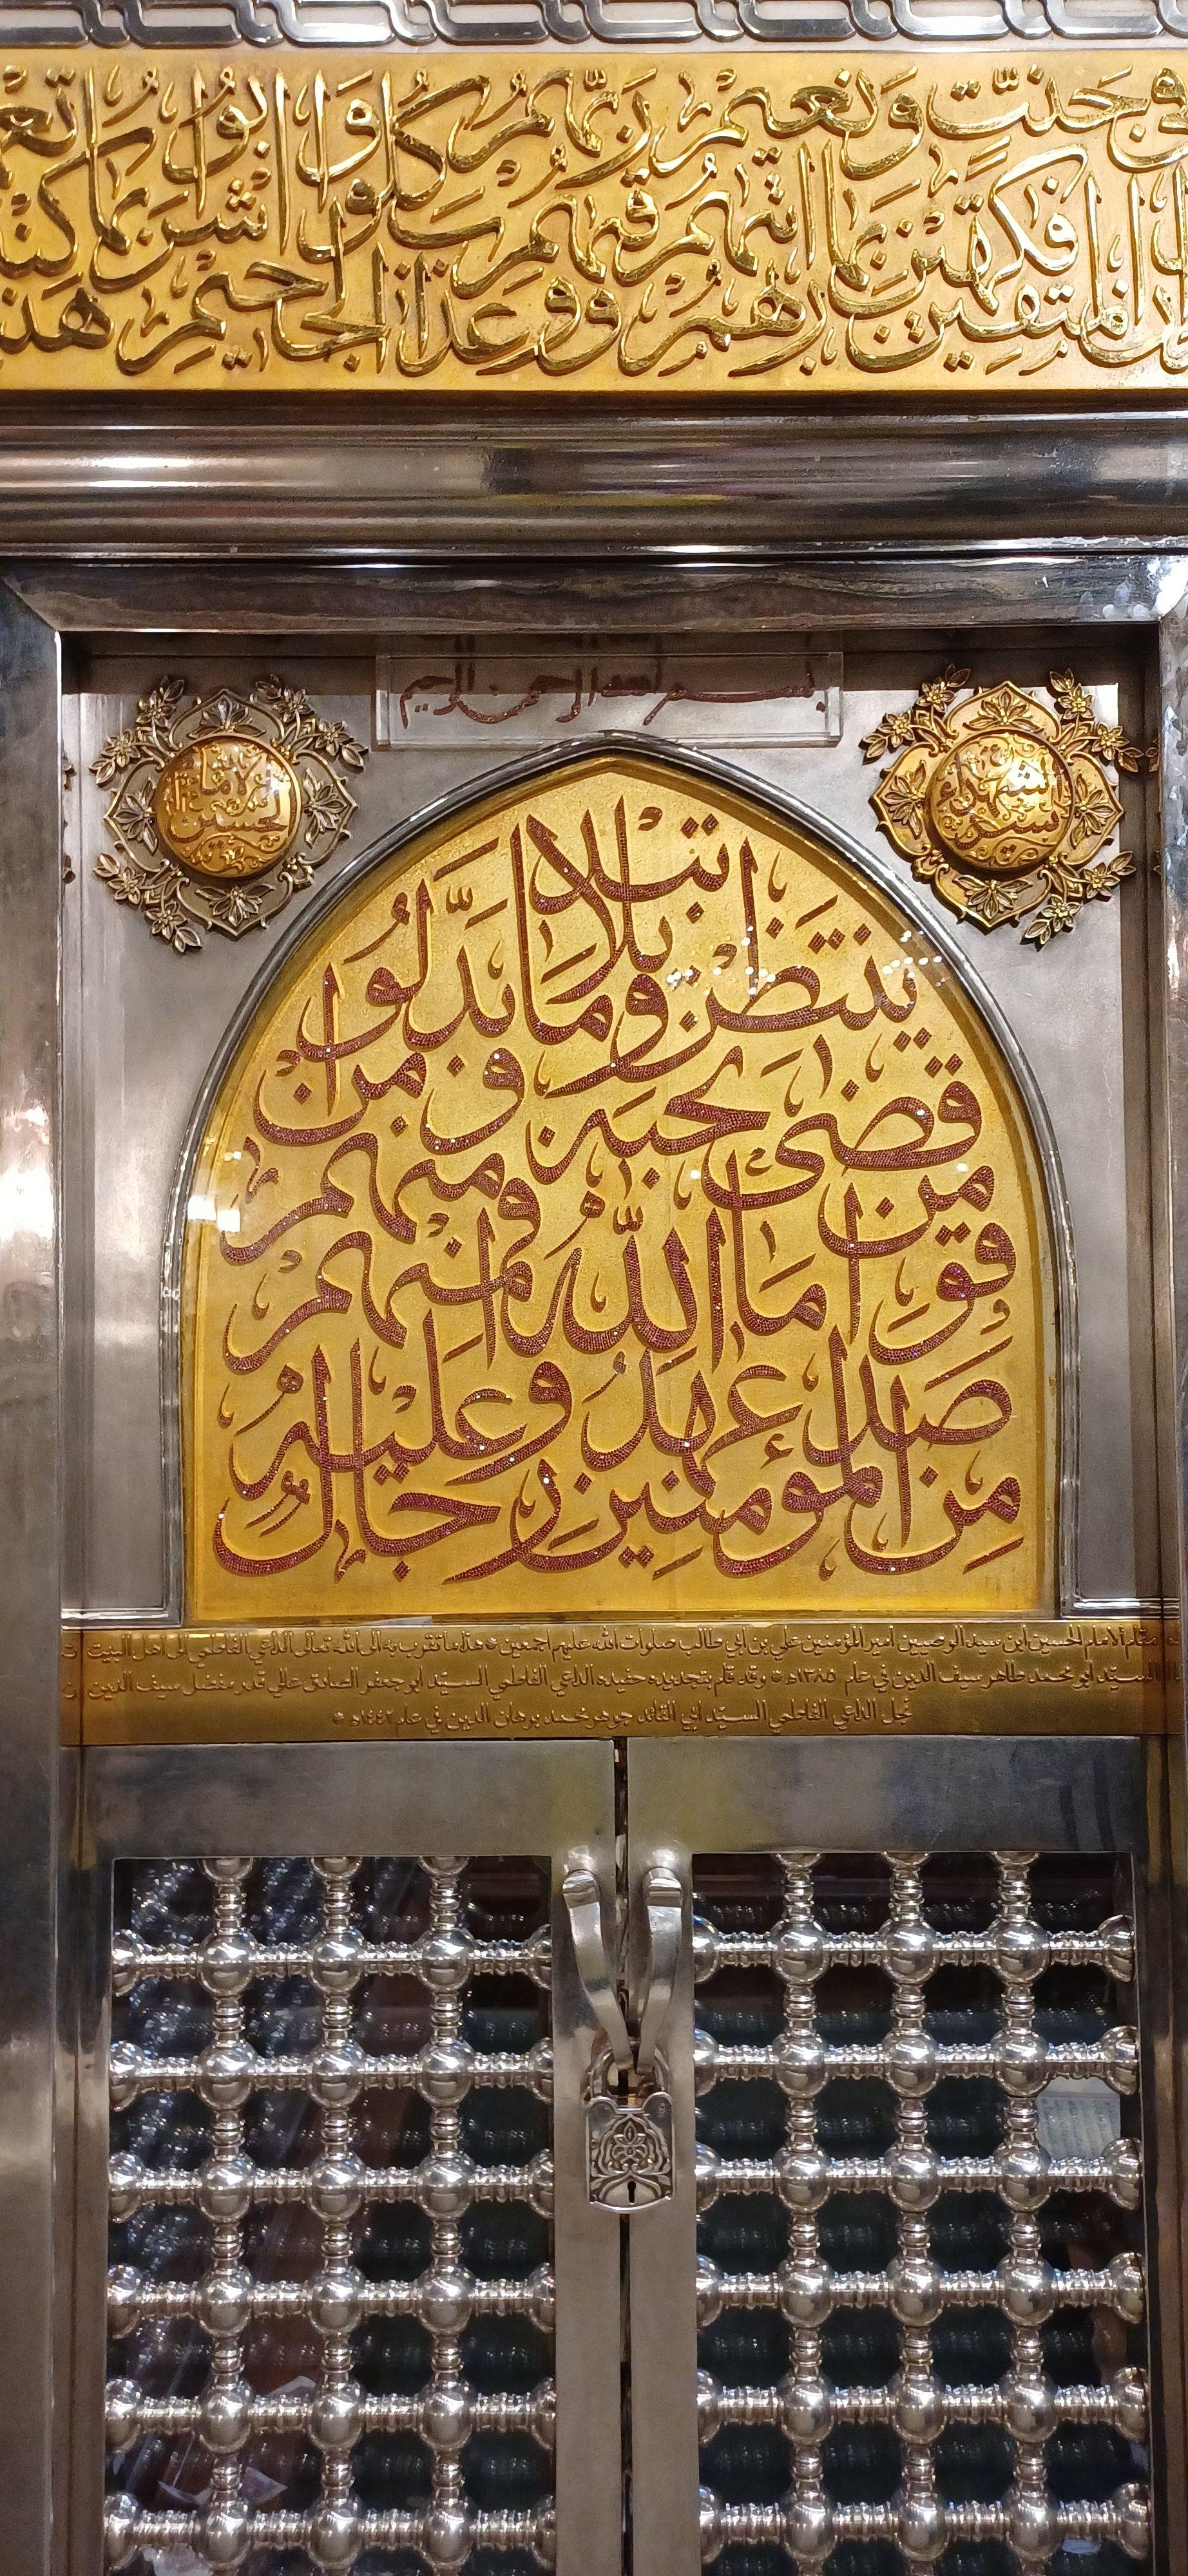 ان المتقين في جنت ونعيم فكهين بما اتهم ربهم ووقهم ربهم عذاب الجحيم كلوا واشربوا هن
بسم الله الرحمن الرحيم
سيد الشهداء
الامام الحسين
من المؤمنين رجال صدقوا ما عهدوا الله عليه فمنهم من قضى نحبه ومنهم من ينتظر وما بدلوا تبديلا
مقام الامام الحسين ابن سيد الوصيين امير المؤمنين علي بن ابي طالب صلوات الله عليهم اجمعين هذا ما تقرب به الى الله تعالى الداعي الفاطمي الى اهل البيت
السيد ابو محمد طاهر سيف الدين في عام ١٣٨٥ھ وقد قام بتجديده حفيده الداعي الفاطمي السيد ابو جعفر الصادق عالي قدر مفضل سيف الدين
نجل الداعي الفاطمي السيد ابي القائد جوهر محمد برهان الدين في عام ١٤٤٢ھ